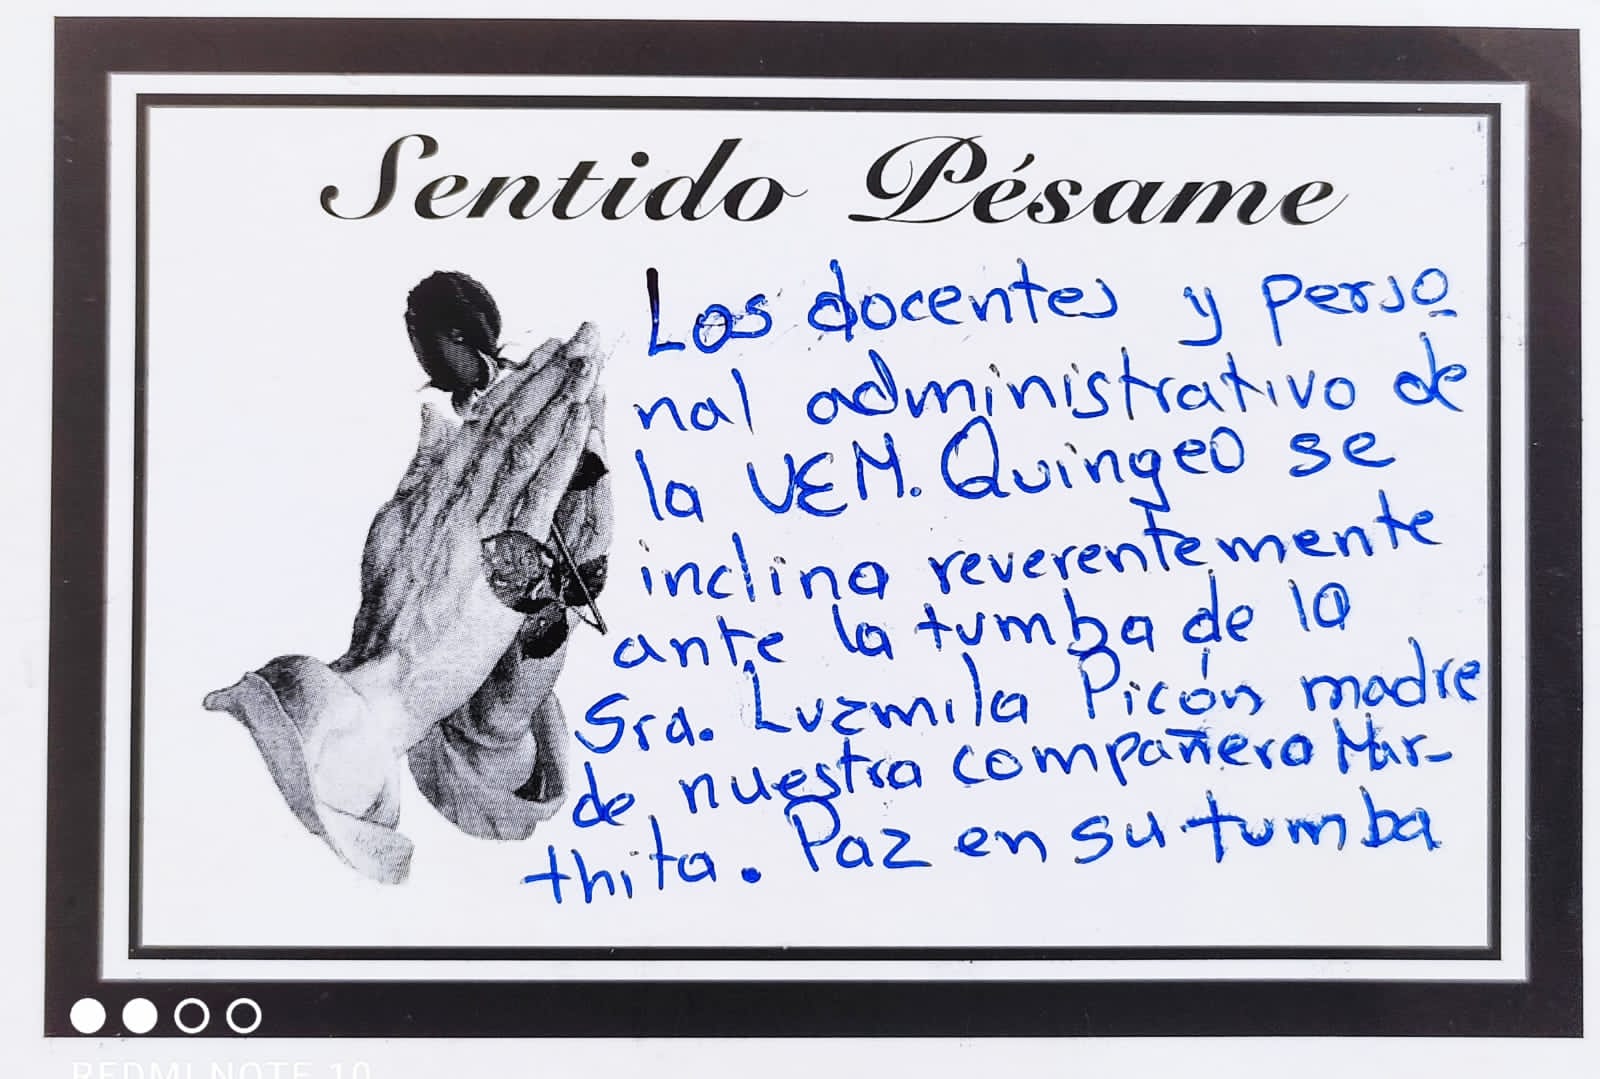 Sentido Pésame
Los docentes y perso
nal administrativo de
la UEM. Quingeo se
inclina reverentemente
ante la tumba de la
Sra. Luzmila Picón madre
de nuestra compañera Mar-
thita. Paz en su tumba
REDMI NOTE 10